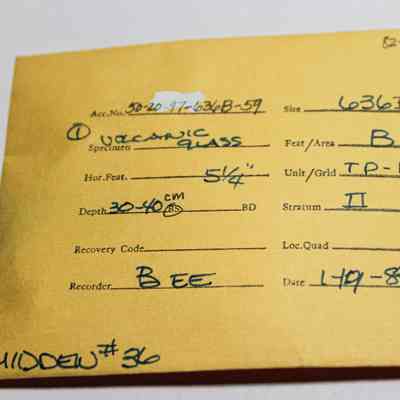 82-
Acc.No. 50-20-97-636B-59 Size 6363
① VOLCANIC GLASS
Specimen Feat/Area B
Hor.Feat. 5 1/4" Unit/Grid TP-
Depth 30-40 CM BS BD Stratum II
Recovery Code Loc.Quad
Recorder BEE Date
MIDDEN #36